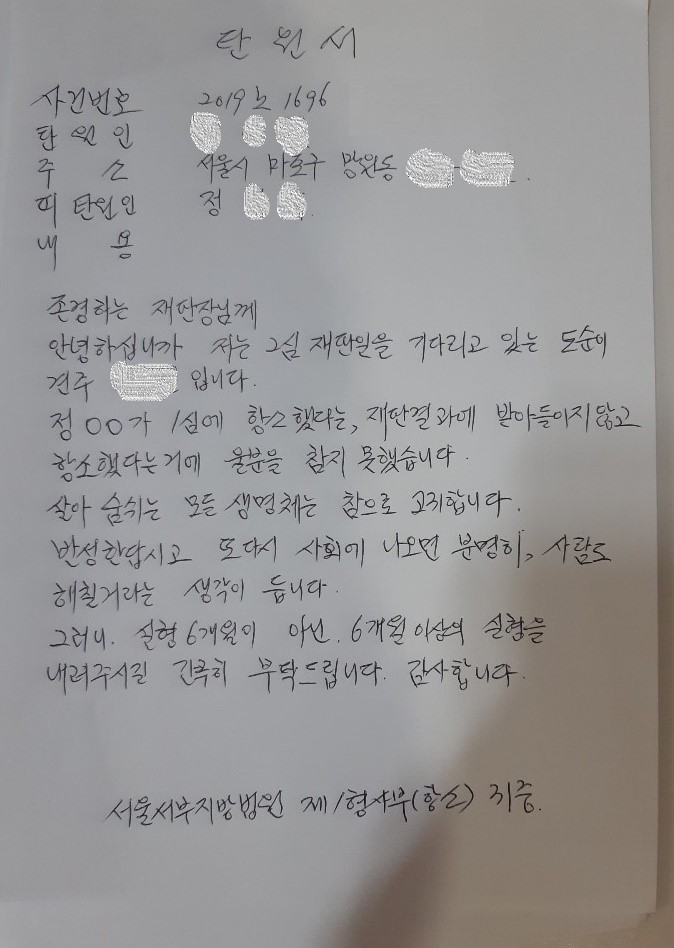 탄 원 서
사건번호 2019노1696
탄 원 인
주 소 서울시 마포구 망원동
피 탄원인 정
내 용
존경하는 재판장님께
안녕하십니까 저는 그심 재판일을 기다리고 있는 도순이
견주 입니다.
정○○가 1심에 항소했다는, 재판결과에 받아들이지않고
항소했다는거에 울분을 참지 못했습니다.
살아 숨쉬는 모든 생명체는 참으로 고귀합니다.
반성한답시고 또다시 사회에 나오면 분명히, 사람도
해칠거라는 생각이 듭니다.
그러니. 실형 6개월이 아닌. 6개월 이상의 실형을
내려주시길 간곡히 부탁드립니다. 감사합니다.
서울서부지방법원 제1형사부(항소) 귀중.